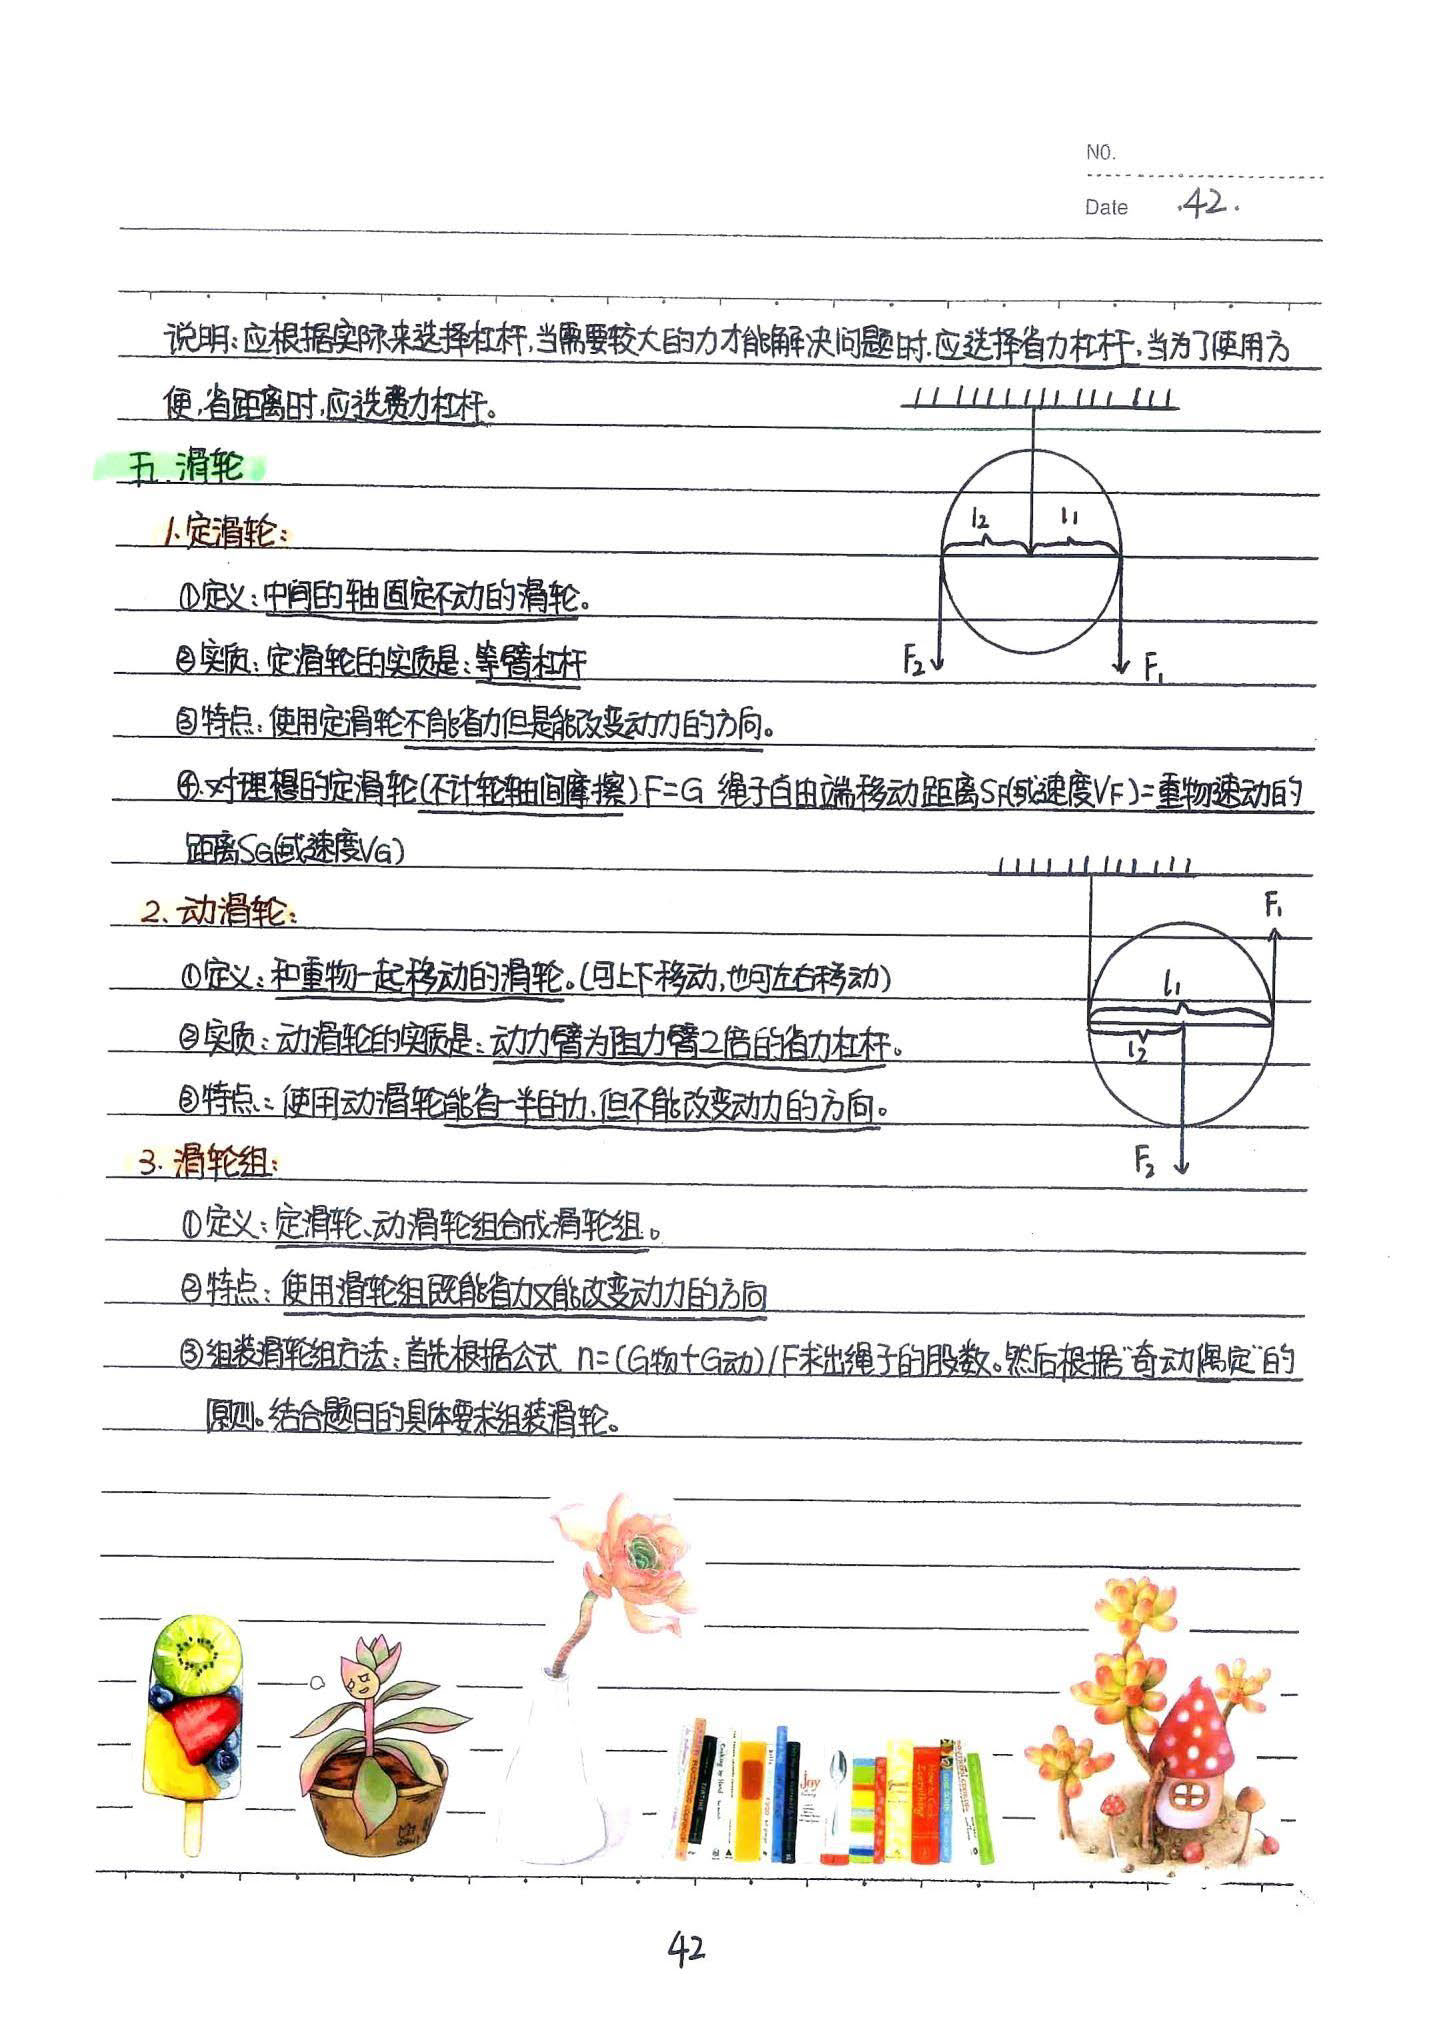 NO.
Date .42.
说明:应根据实际来选择杠杆,当需要较大的力才能解决问题时.应选择省力杠杆,当为了使用方
便,省距离时,应选费力杠杆。
五.滑轮
1.定滑轮:
l2 l1
①定义:中间的轴固定不动的滑轮。
②实质:定滑轮的实质是:等臂杠杆
F2 F1
③特点:使用定滑轮不能省力但是能改变动力的方向。
④.对理想的定滑轮(不计轮轴间摩擦)F=G 绳子自由端移动距离SF(或速度VF)=重物速动的
距离SG(或速度VG)
2.动滑轮:
F1
①定义:和重物一起移动的滑轮。(可上下移动,也可左右移动)
l1
②实质:动滑轮的实质是:动力臂为阻力臂2倍的省力杠杆。
l2
③特点:使用动滑轮能省一半的力,但不能改变动力的方向。
3.滑轮组:
F2
①定义:定滑轮、动滑轮组合成滑轮组。
②特点:使用滑轮组既能省力又能改变动力的方向
③组装滑轮组方法:首先根据公式 n=(G物+G动)/F求出绳子的股数。然后根据"奇动偶定"的
原则。结合题目的具体要求组装滑轮。
joy
42